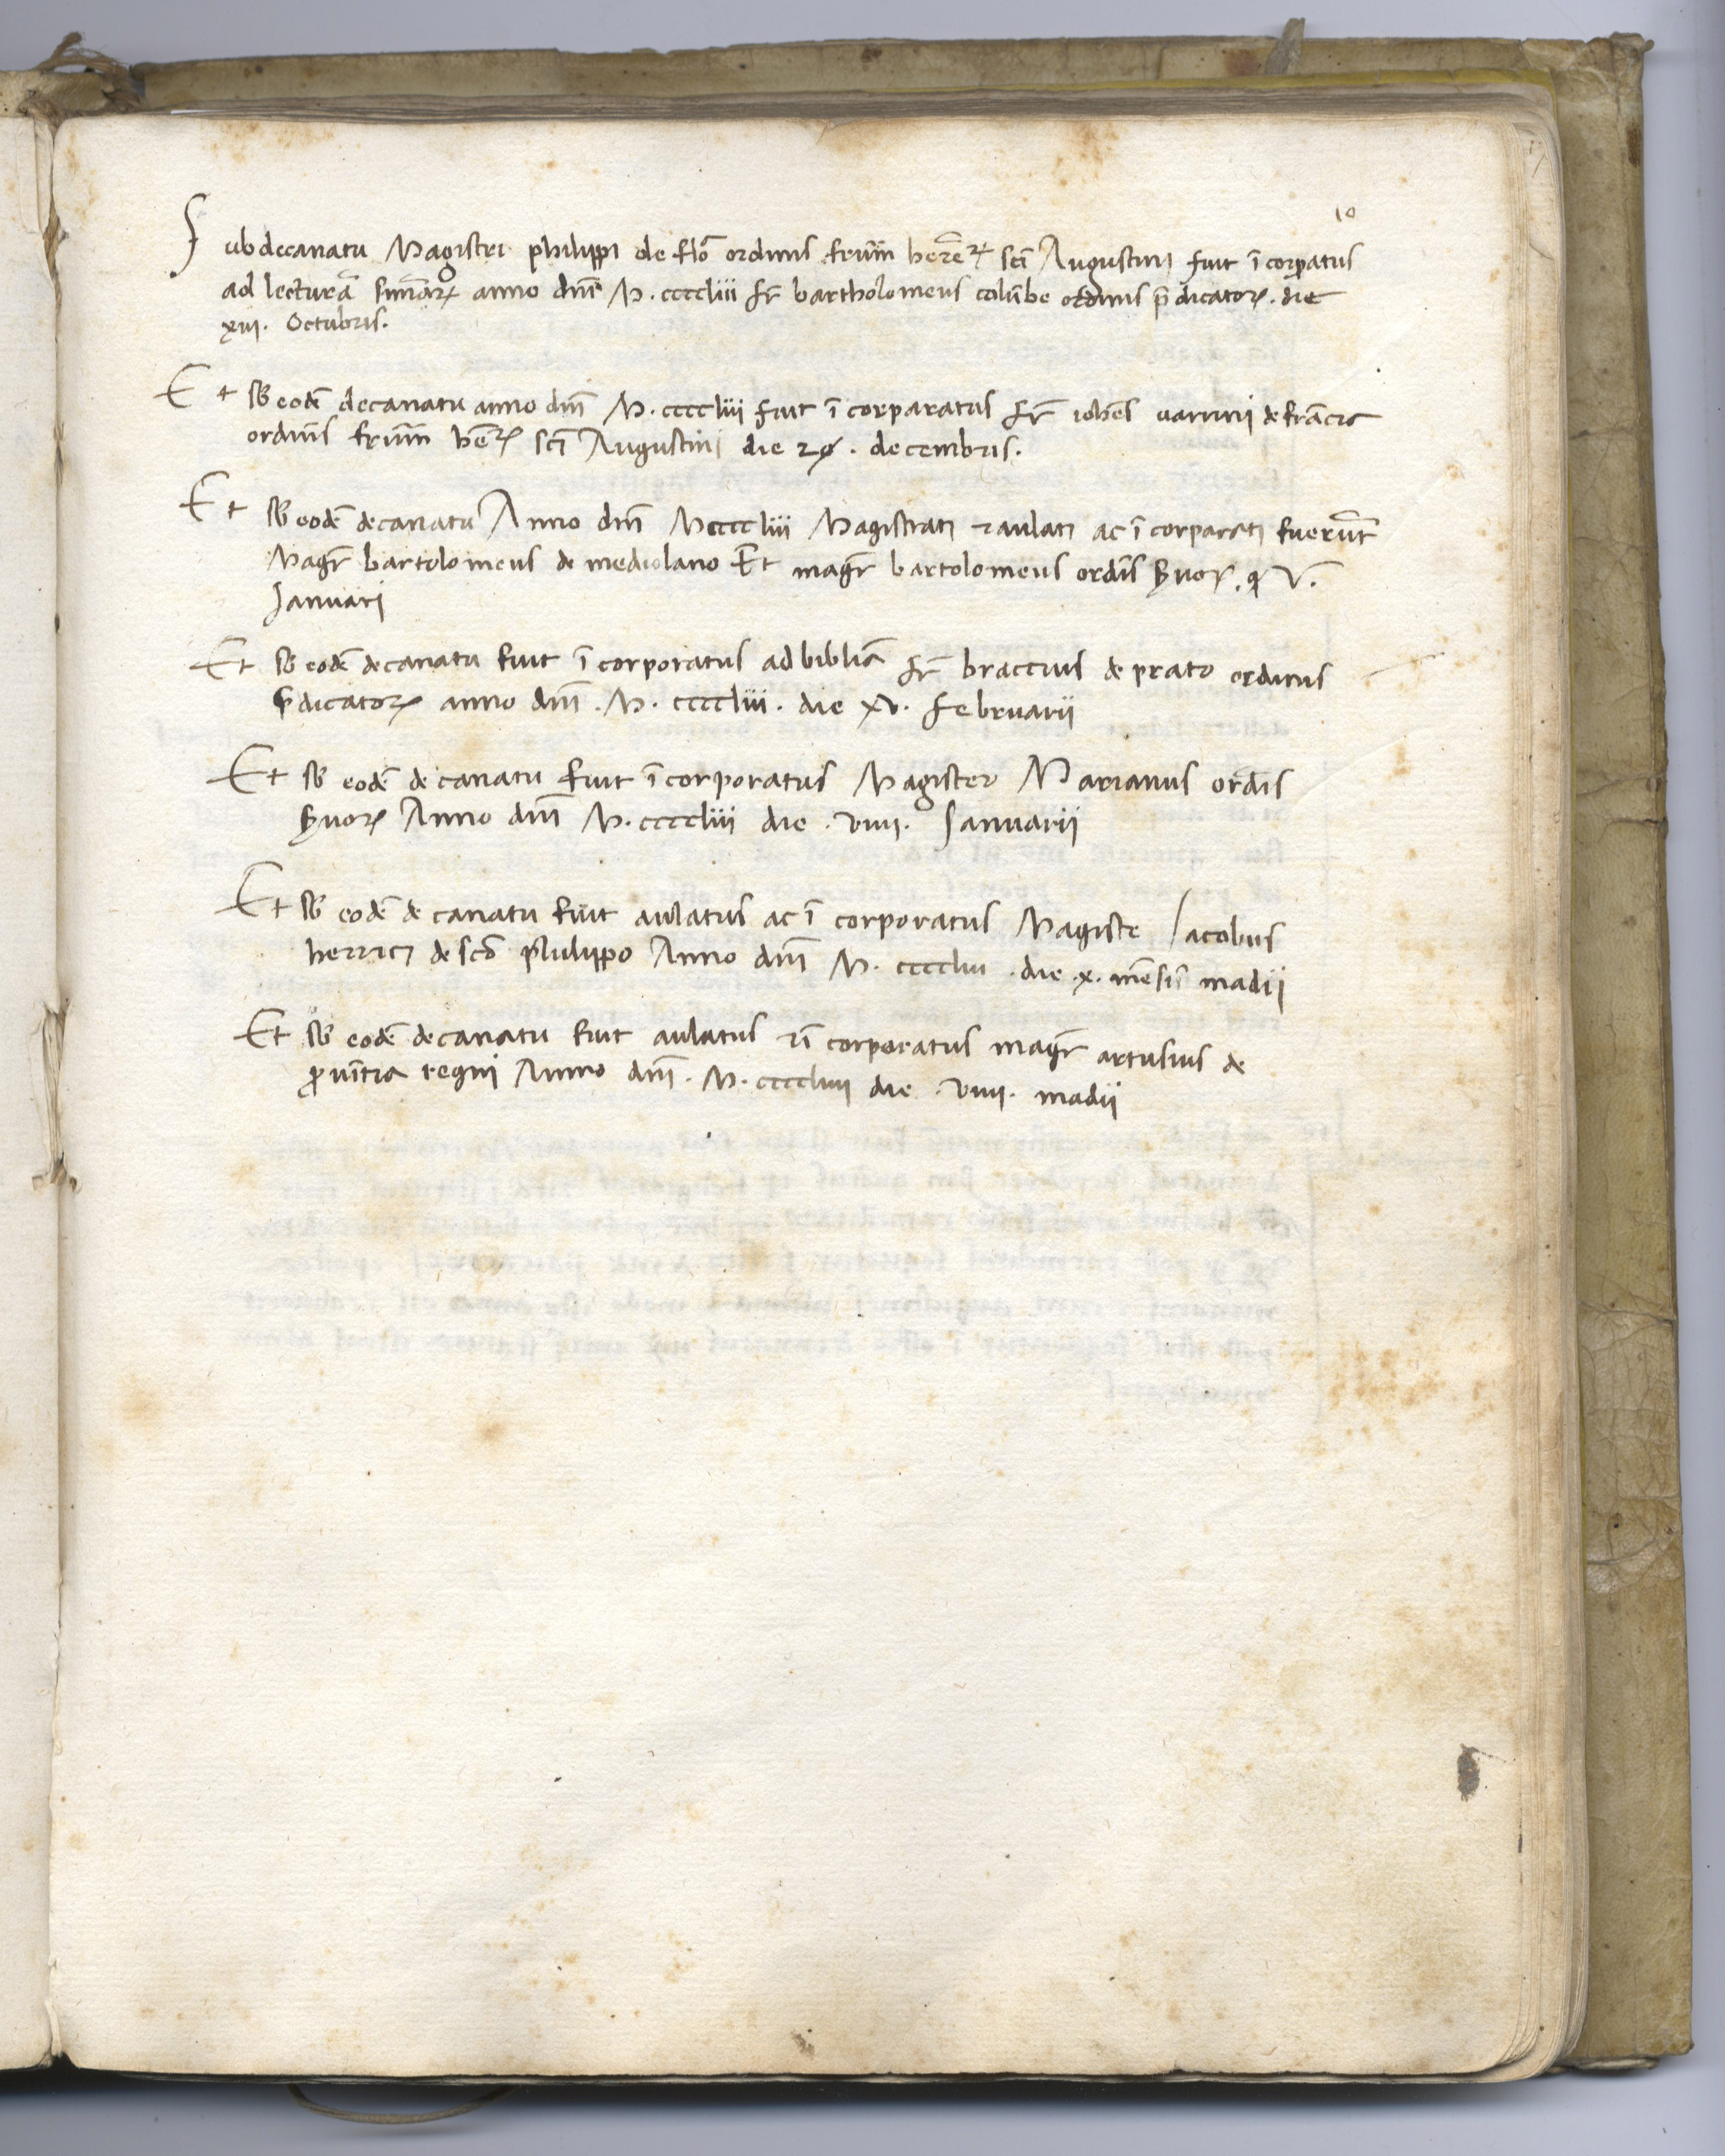 10
Sub decanatu Magistri philippi de flō ordinis frūm herē⁊ sci Augustini fuit ī corpatus
ad lecturā sniāꝝ anno dni M.ccccliii fr bartholomeus colūbe ordinis p̄dicatoꝝ. die
xvi. Octubris.
Et sb eodē decanatu anno dni M.ccccliii fuit ī corparatus fr iohēs vannini de frācis
ordinis frūm hēꝝ sci Augustini die 20. decembris.
Et sb eodē decanatu Anno dni Mccccliii Magistrati ⁊ aulati ac ī corparati fuerūt
Magr bartolomeus de mediolano Et magr bartolomeus ordis Svoꝝ. V.
Januari
Et sb eodē decanatu fuit ī corporatus ad bibliā fr braccius de prato ordinis
p̄dicatoꝝ anno dni. M.cccclii. die xv. februarii
Et sb eodē decanatu fuit ī corporatus Magister Marianus ordis
Svoꝝ Anno dni M.cccclii die. viii. Januarii
Et sb eodē decanatu fuit aulatus ac ī corporatus Magiste Jacobus
herrici de sco philippo Anno dni M. cccclii. die. x. mēsis madii
Et sb eodē decanatu fuit aulatus ⁊ ī corporatus magr artusius de
ꝓvītia regni Anno dni. M.ccccliii die. viii. madii